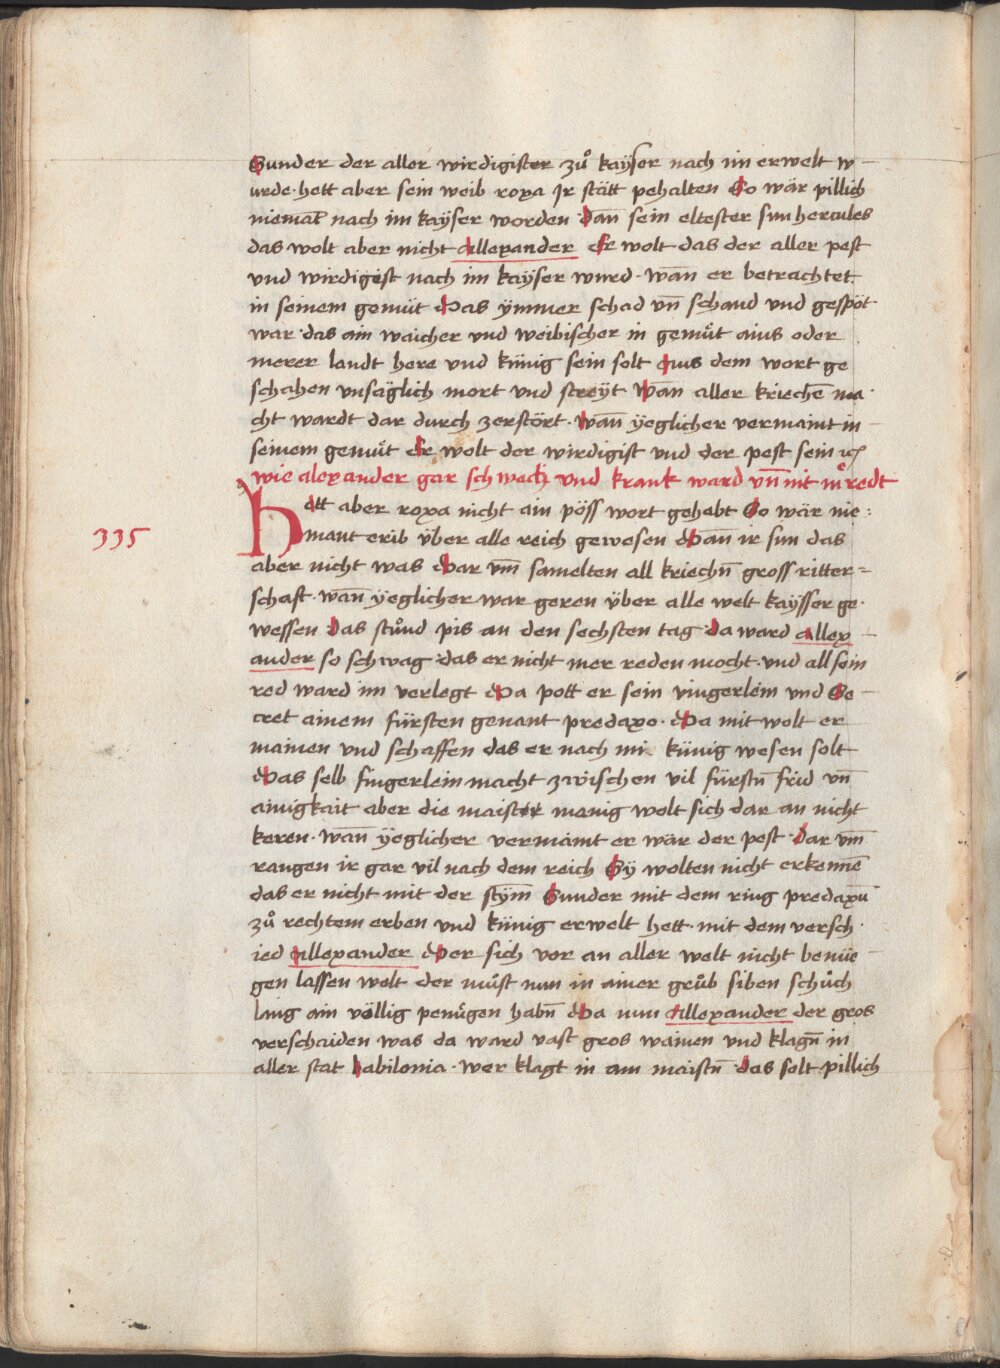 Sunder der aller wirdigister zů kayser nach im erwelt w
urde · hett aber sein weib roxa Jr stätt pehalten So wär pillich
niemāt nach im kayser worden Dañ sein eltester sun hercules
das wolt aber nicht Allexander Er wolt das der aller pest
vnd wirdigest nach im kayser wurd · wañ er betrachtet
in seinem gemüt Das ÿmmer schad vñ schand vnd gespöt
war · das ain waicher vnd weibischer in gemüt ains oder
merer landt here vnd künig sein solt Aus dem wort ge
schahen vnsäglich mort vnd streÿt Wan aller kriechē ma
cht wardt dar durch zerstört · Wañ ÿeglicher vermaint in
seinem gemüt Er wolt der wirdigist vnd der pest sein
wie alexander gar schwach vnd krank ward vñ nit mer redt
Hett aber roxa nicht ain pöss wort gehebt So wär nie
335
mant erib über alle reich gewesen Dan ir sun das
aber nicht was Dar vm̄ samelten all kriechn̄ gross ritter=
schaft · wañ ÿeglicher war geren über alle welt kaysser ge
wessen Das stůnd pis an den sechsten tag · da ward allex
ander so schwag · das er nicht mer reden mocht · vnd all sein
red ward im verlegt Da pott er sein vingerlein vnd Se
cret ainem fürsten genant predaxo · Da mit wolt er
mainen vnd schaffen das er nach im künig wesen solt
Das selb fingerlein macht zwischen vil fürstn̄ frid vñ
ainigkait aber die maister menig wolt sich dar an nicht
keren · wañ ÿeglicher vermaint er wär der pest · Dar vm̄
rangen ir gar vil nach dem reich Sÿ wolten nicht erkennē
das er nicht mit der stÿm̄ Sunder mit dem ring predaxū
zů rechtem erben vnd künig erwelt hett · mit dem versch
ied Allexander Der sich vor an aller welt nicht benüe
gen lassen wolt der můst nun in ainer grůb siben schůch
lang ain völlig penügen habn̄ Da nun Allexander der gros
verschaiden was da ward vast gros wainen vnd klagn̄ in
aller stat babilonia · wer klagt in am maistn̄ das solt pillich